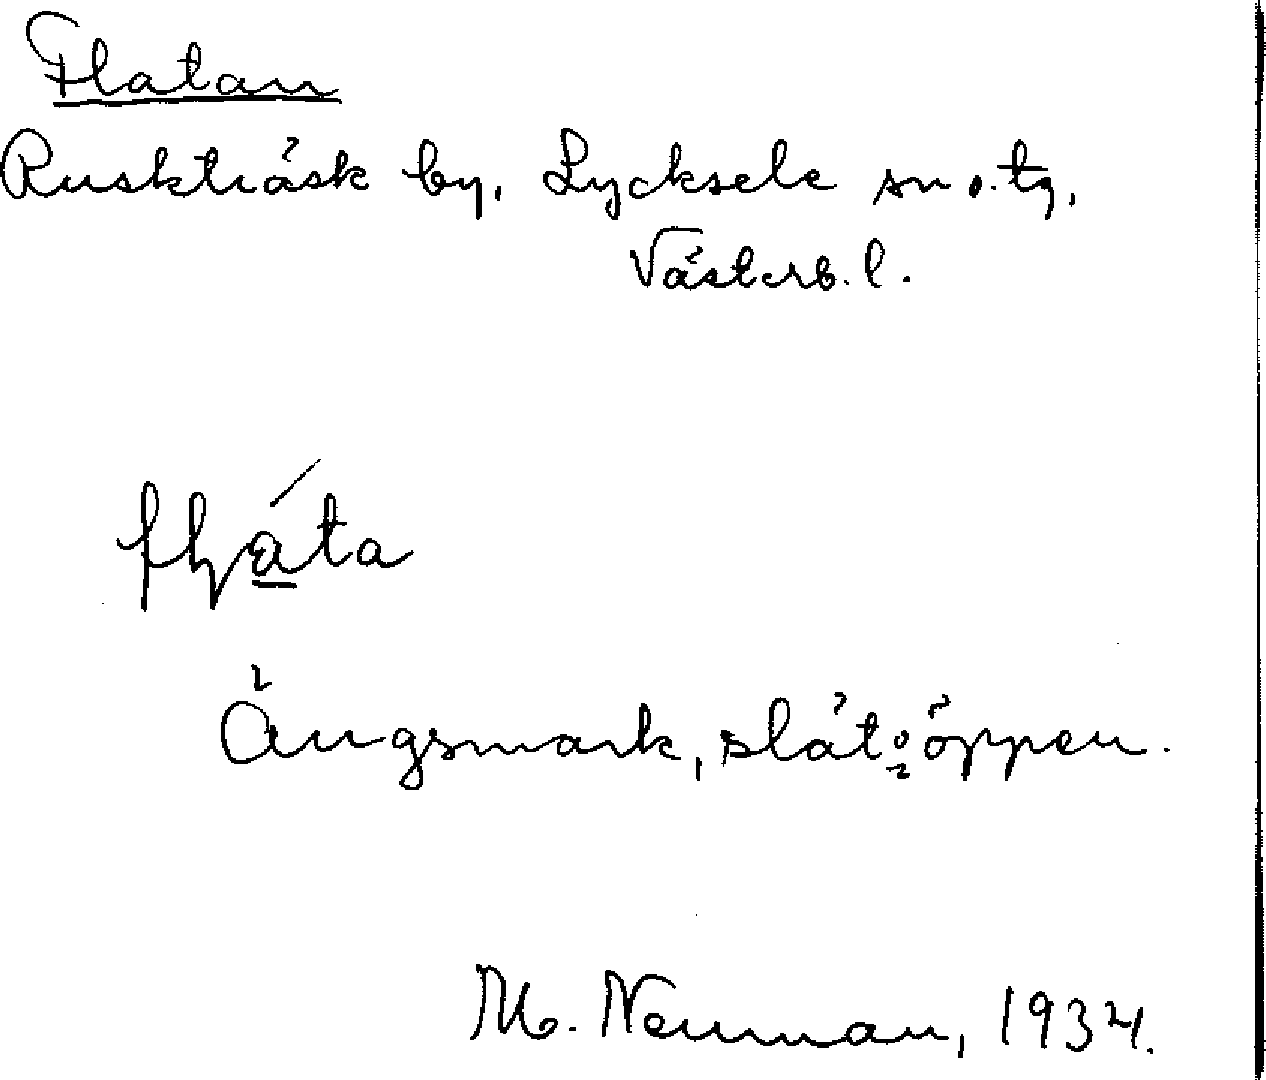 Flatan
Ruskträsk by, Lycksele sn o. tg,
Västerb. l.
Ängsmark, slåt, öppen.
M. Neuman, 1934.